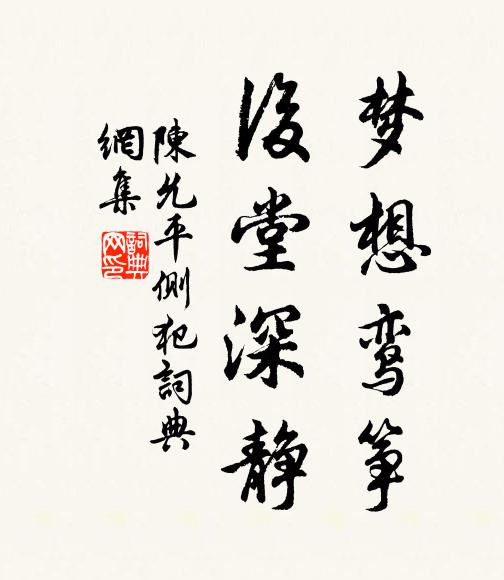 梦想鸾筝
後堂深静
陳允平側犯詞典
網集
詞典
网印